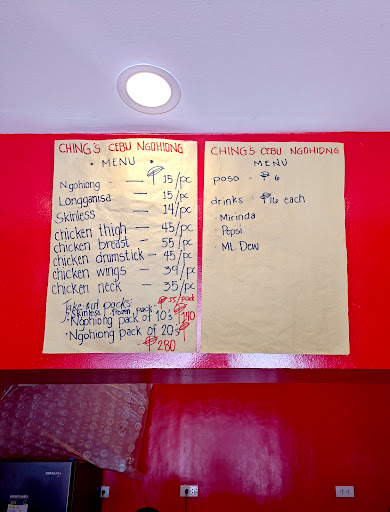 CHING'S CEBU NGOHIONG
• MENU •
Ngohiong — ₱ 15/pc
Longganisa — 15/pc
Skinless — 14/pc
chicken thigh — 45/pc
chicken breast — 55/pc
chicken drumstick — 45/pc
chicken wings — 39/pc
chicken neck — 35/pc
Take out packs:
• Skinless frozen pack - ₱55/pack
• Ngohiong pack of 10's ₱140
• Ngohiong pack of 20's
₱280
CHING'S CEBU NGOHIONG
MENU
poso - ₱6
drinks - ₱16 each
• Mirinda
• Pepsi
• Mt. Dew